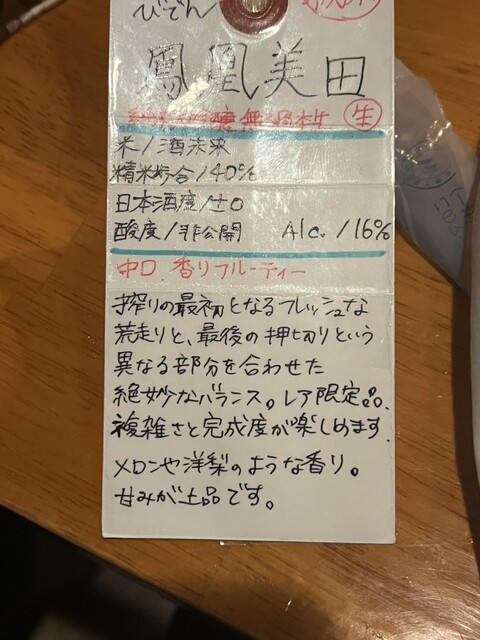 びでん
鳳凰美田
純米大吟醸無濾過本生 生
米/酒未来
精米歩合/40%
日本酒度/±0
酸度/非公開 Alc./16%
中口 香りフルーティー
搾りの最初となるフレッシュな
荒走りと、最後の押切りという
異なる部分を合わせた
絶妙なバランス。レア限定品。
複雑さと完成度が楽しめます
メロンや洋梨のような香り。
甘みが上品です。